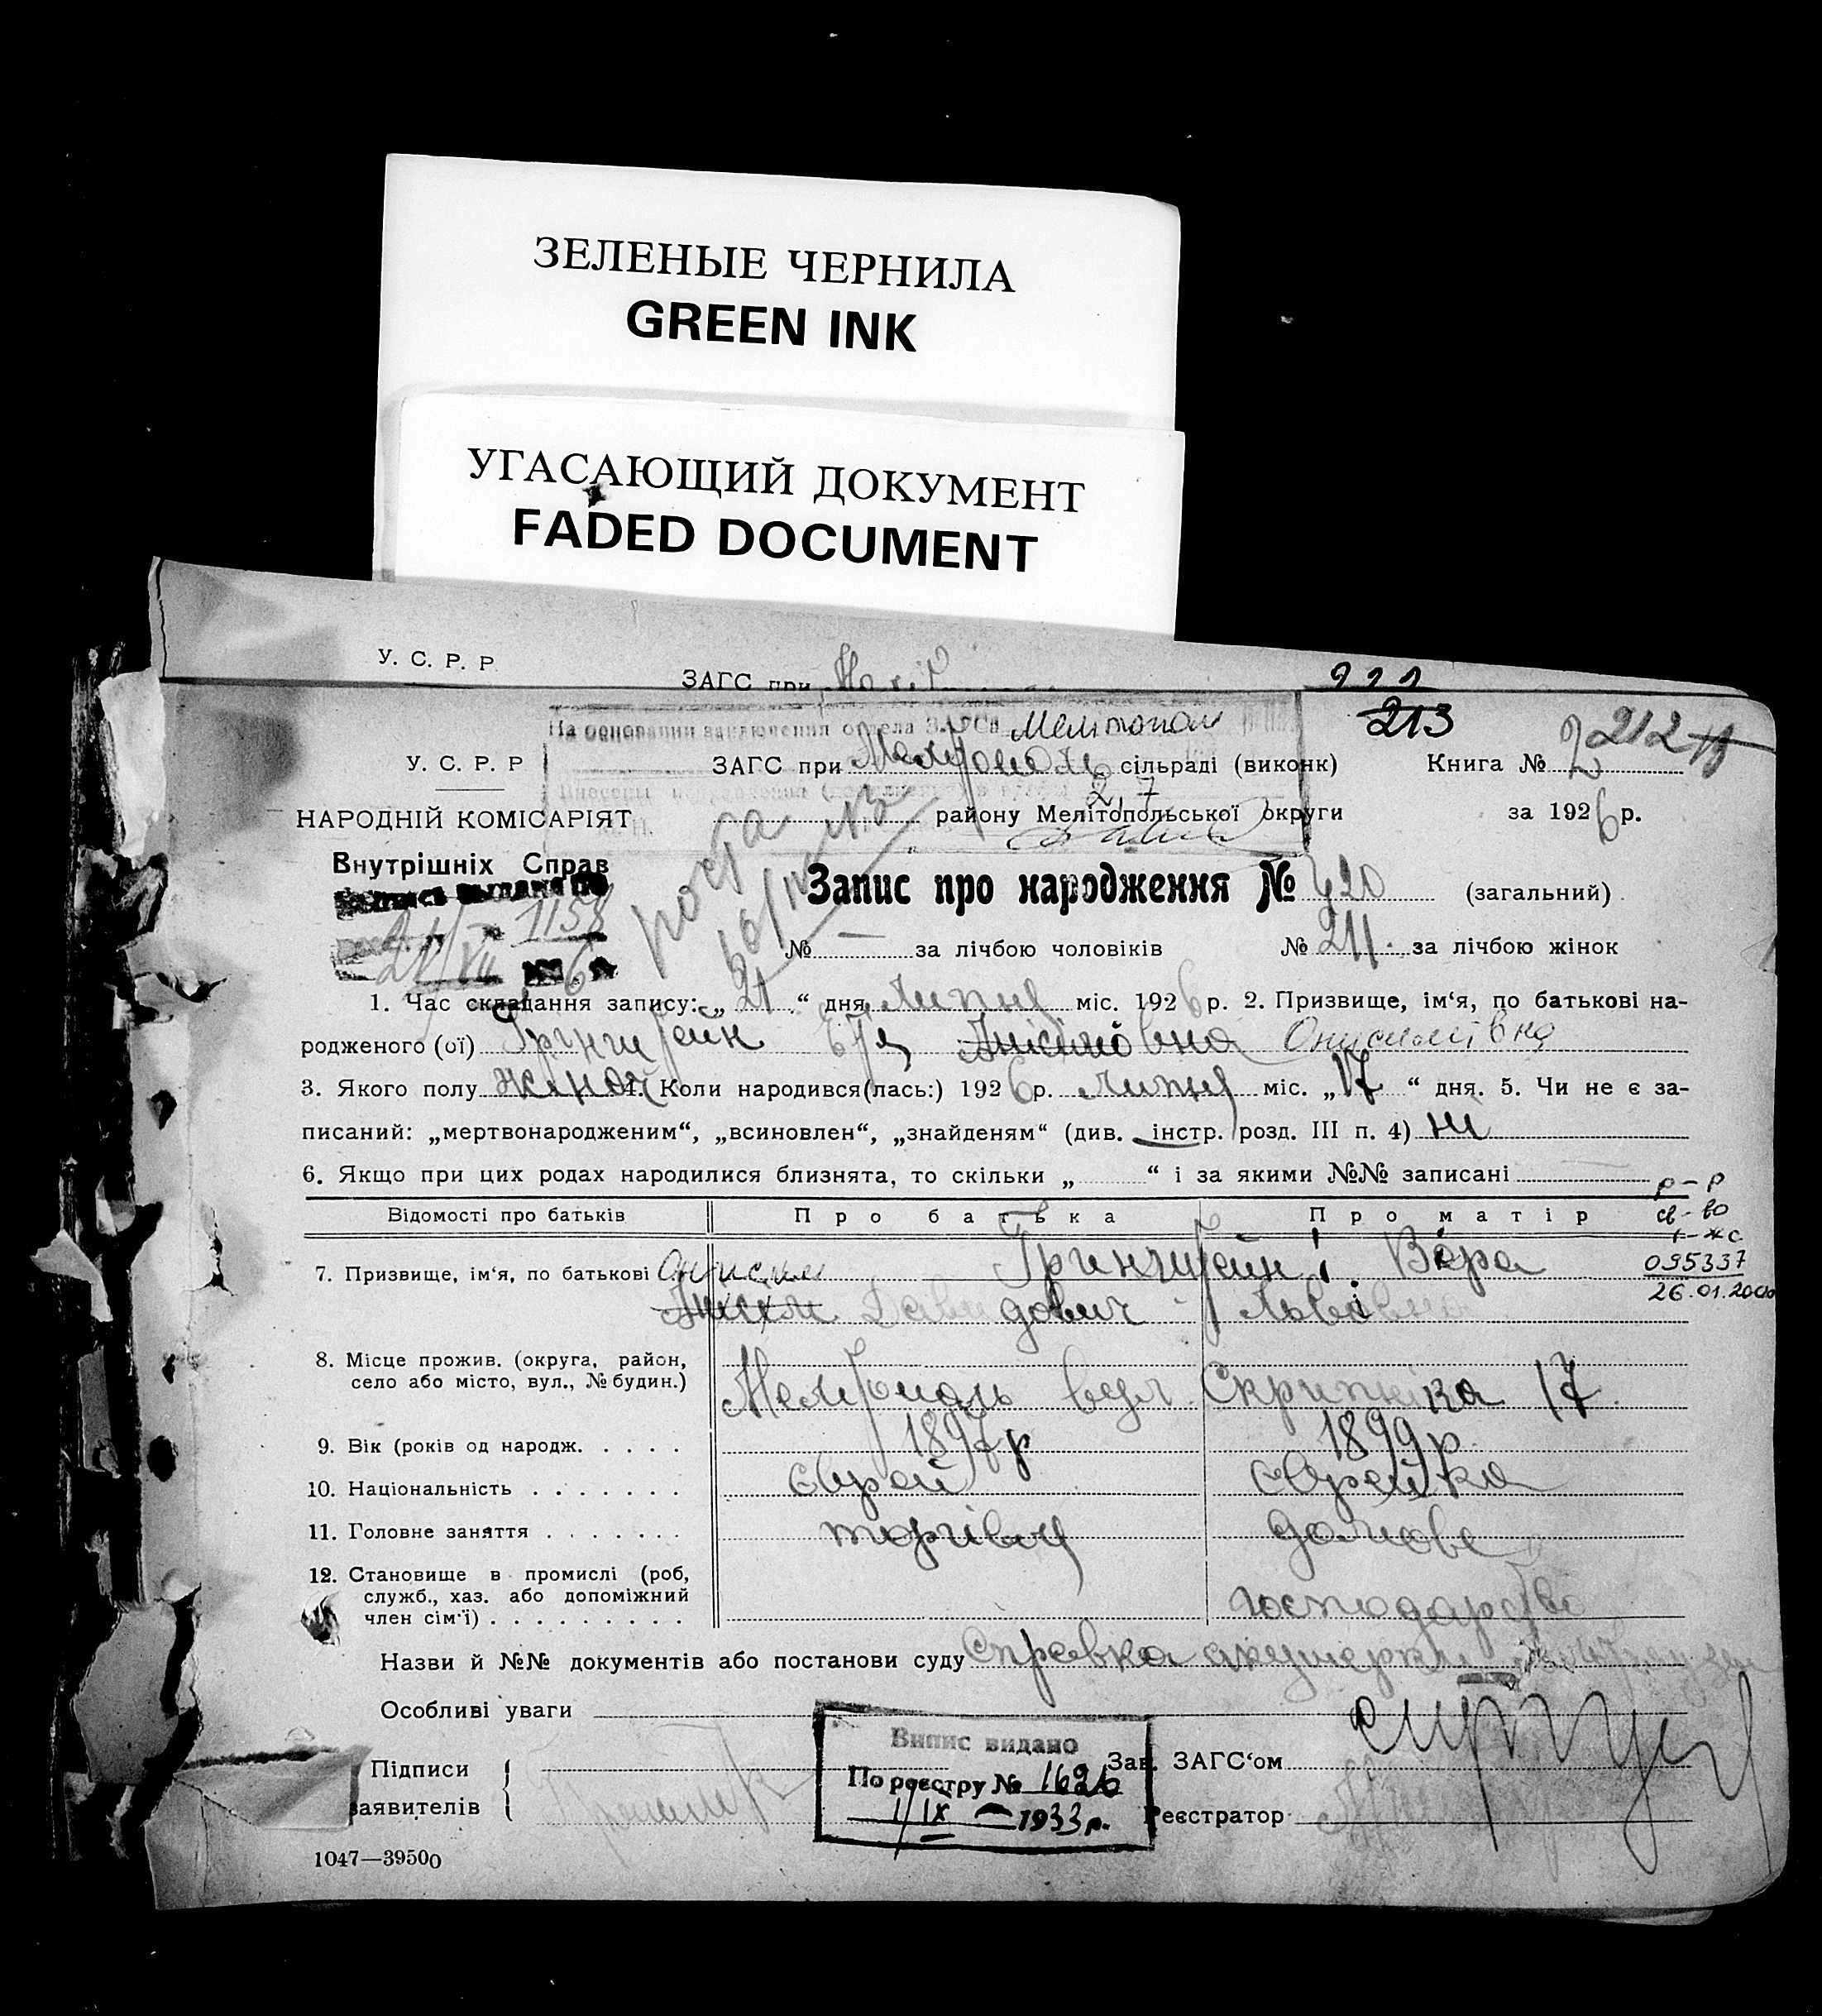 ЗЕЛЕНЫЕ ЧЕРНИЛА
GREEN INK
УГАСАЮЩИЙ ДОКУМЕНТ
FADED DOCUMENT
У. С. Р. Р.
ЗАГС при
213
212
На основании заключения отдела ЗАГСа Мелитополь
У. С. Р. Р
ЗАГС при Мелітополь сільраді (виконк)
Книга № 2
НАРОДНІЙ КОМІСАРІЯТ
району Мелітопольської округи
за 1926 р.
Внутрішніх Справ
Запис про народження № 420 (загальний)
№ — за лічбою чоловіків
№ 211 за лічбою жінок
1. Час складання запису: „ 21 “ дня Липня міс. 1926 р. 2. Призвище, ім‘я, по батькові на-
родженого (ої) Грінштейн Анісімовна Онисимівна
3. Якого полу жіноч 4. Коли народився(лась:) 1926 р. Липня міс. „ 17 “ дня. 5. Чи не є за-
писаний: „мертвонародженим“, „всиновлен“, „знайденям“ (див. інстр. розд. III п. 4) ні
6. Якщо при цих родах народилися близнята, то скільки „ “ і за якими №№ записані
Відомості про батьків
Про батька
Про матір
св-во
1-жс
095337
26.01.2000
7. Призвище, ім‘я, по батькові Онисим Гринштейн і Вера
Анисим Давидович Львівна
8. Місце прожив. (округа, район,
село або місто, вул., № будин.)
Мелітополь вул Скрипніка 17
9. Вік (років од народж. . . . .
1897 р
1899 р
10. Національність . . . . . . .
єврей
єврейка
11. Головне заняття . . . . . . .
торгівля
домове
12. Становище в промислі (роб,
служб., хаз. або допоміжний
член сім‘ї) . . . . . . . . .
господарство
Назви й №№ документів або постанови суду Справка акушерки
Особливі уваги
Випис видано
По реєстру № 1626
1/IX 1933 р.
Підписи
заявителів
Зав. ЗАГС‘ом
Реєстратор
1047—39500